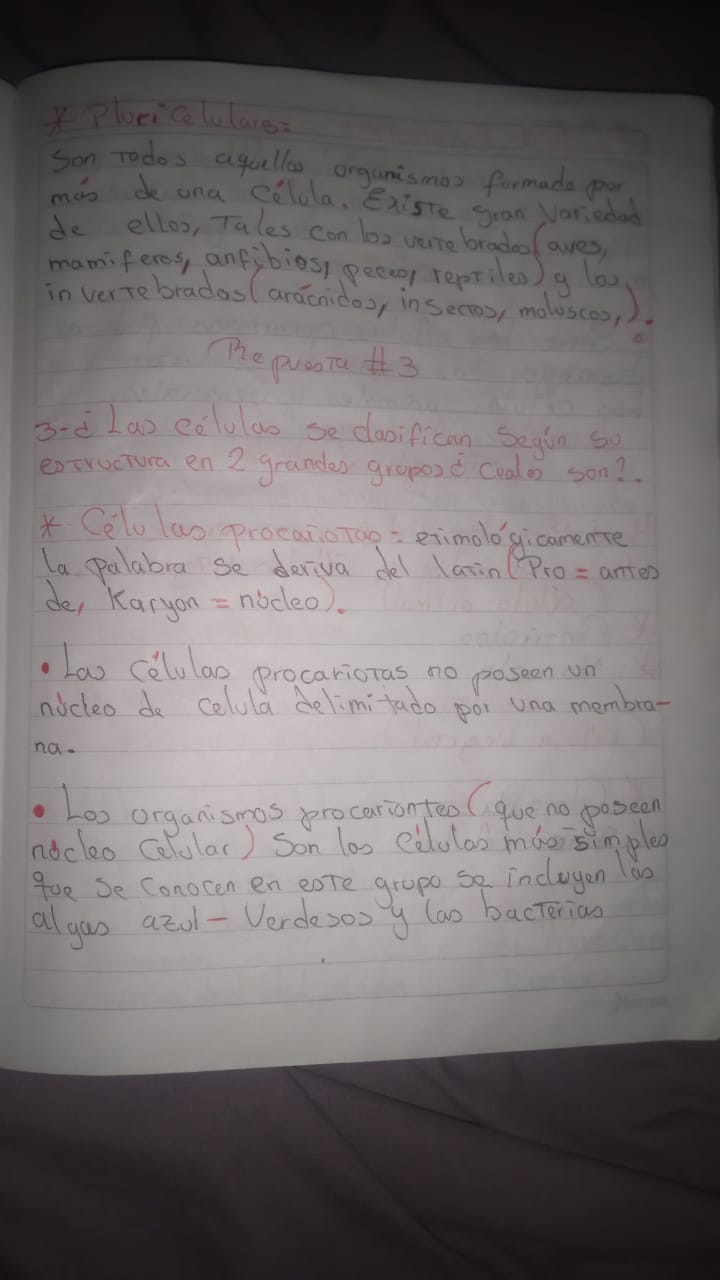 * Pluricelulares=
Son Todos aquellos organismos formado por
más de una Célula. Existe gran Variedad
de ellos, Tales con los vertebrados (aves,
mamiferos, anfibios, peces, reptiles) y los
invertebrados (arácnidos, insectos, moluscos,).
Repuesta #3
3-¿ Las células se clasifican Según su
estructura en 2 grandes grupos ¿ Cuales son?.
* Células procariotas = etimológicamente
la palabra se deriva del latin (Pro = antes
de, Karyon = núcleo).
• Las Células procariotas no poseen un
núcleo de celula delimitado por una membra-
na.
• Los organismos procariontes (que no poseen
núcleo Celular) Son las células más simples
que se conocen en este grupo se incluyen las
algas azul - Verdesos y las bacterias
Norma